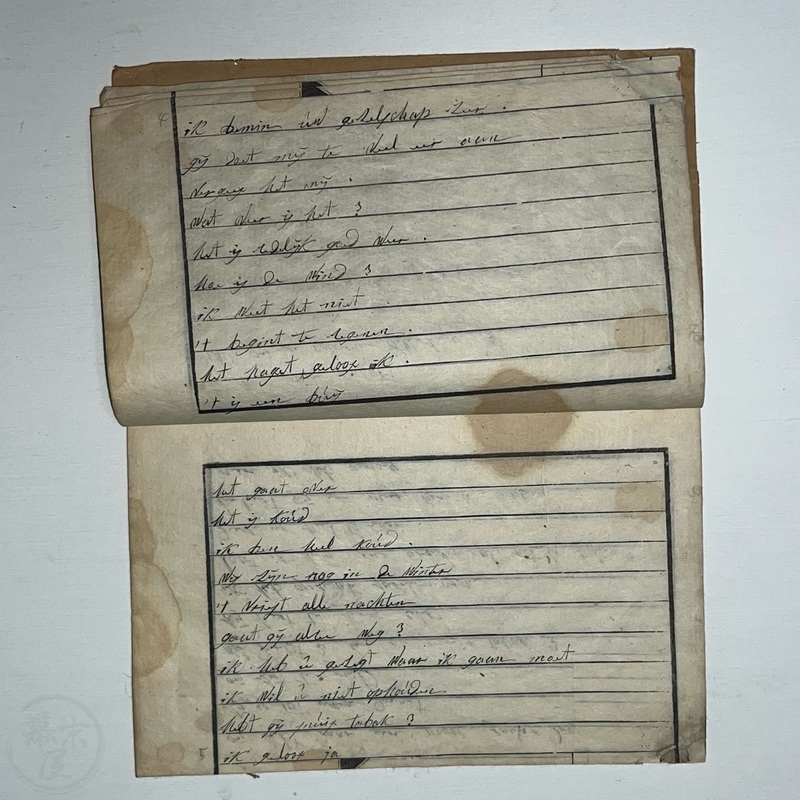 ik bemin uw geselschap zeer.
gÿ doet mÿ te veel eer aan
vergeef het mÿ.
Wat weer is het?
het is redelÿk goed weer.
hoe is de wind?
ik weet het niet
't begint te regenen.
het hagelt, geloof ik.
't is een büÿ
het gaat over
het is koúd
ik ben heel koúd.
wÿ zÿn nog in de winter
't vriest alle nachten
gaat gÿ alle weg?
ik heb ú gesegt waar ik gaan moet
ik wil ú niet ophoúden
hebt gÿ snúif tabak?
ik geloof ja